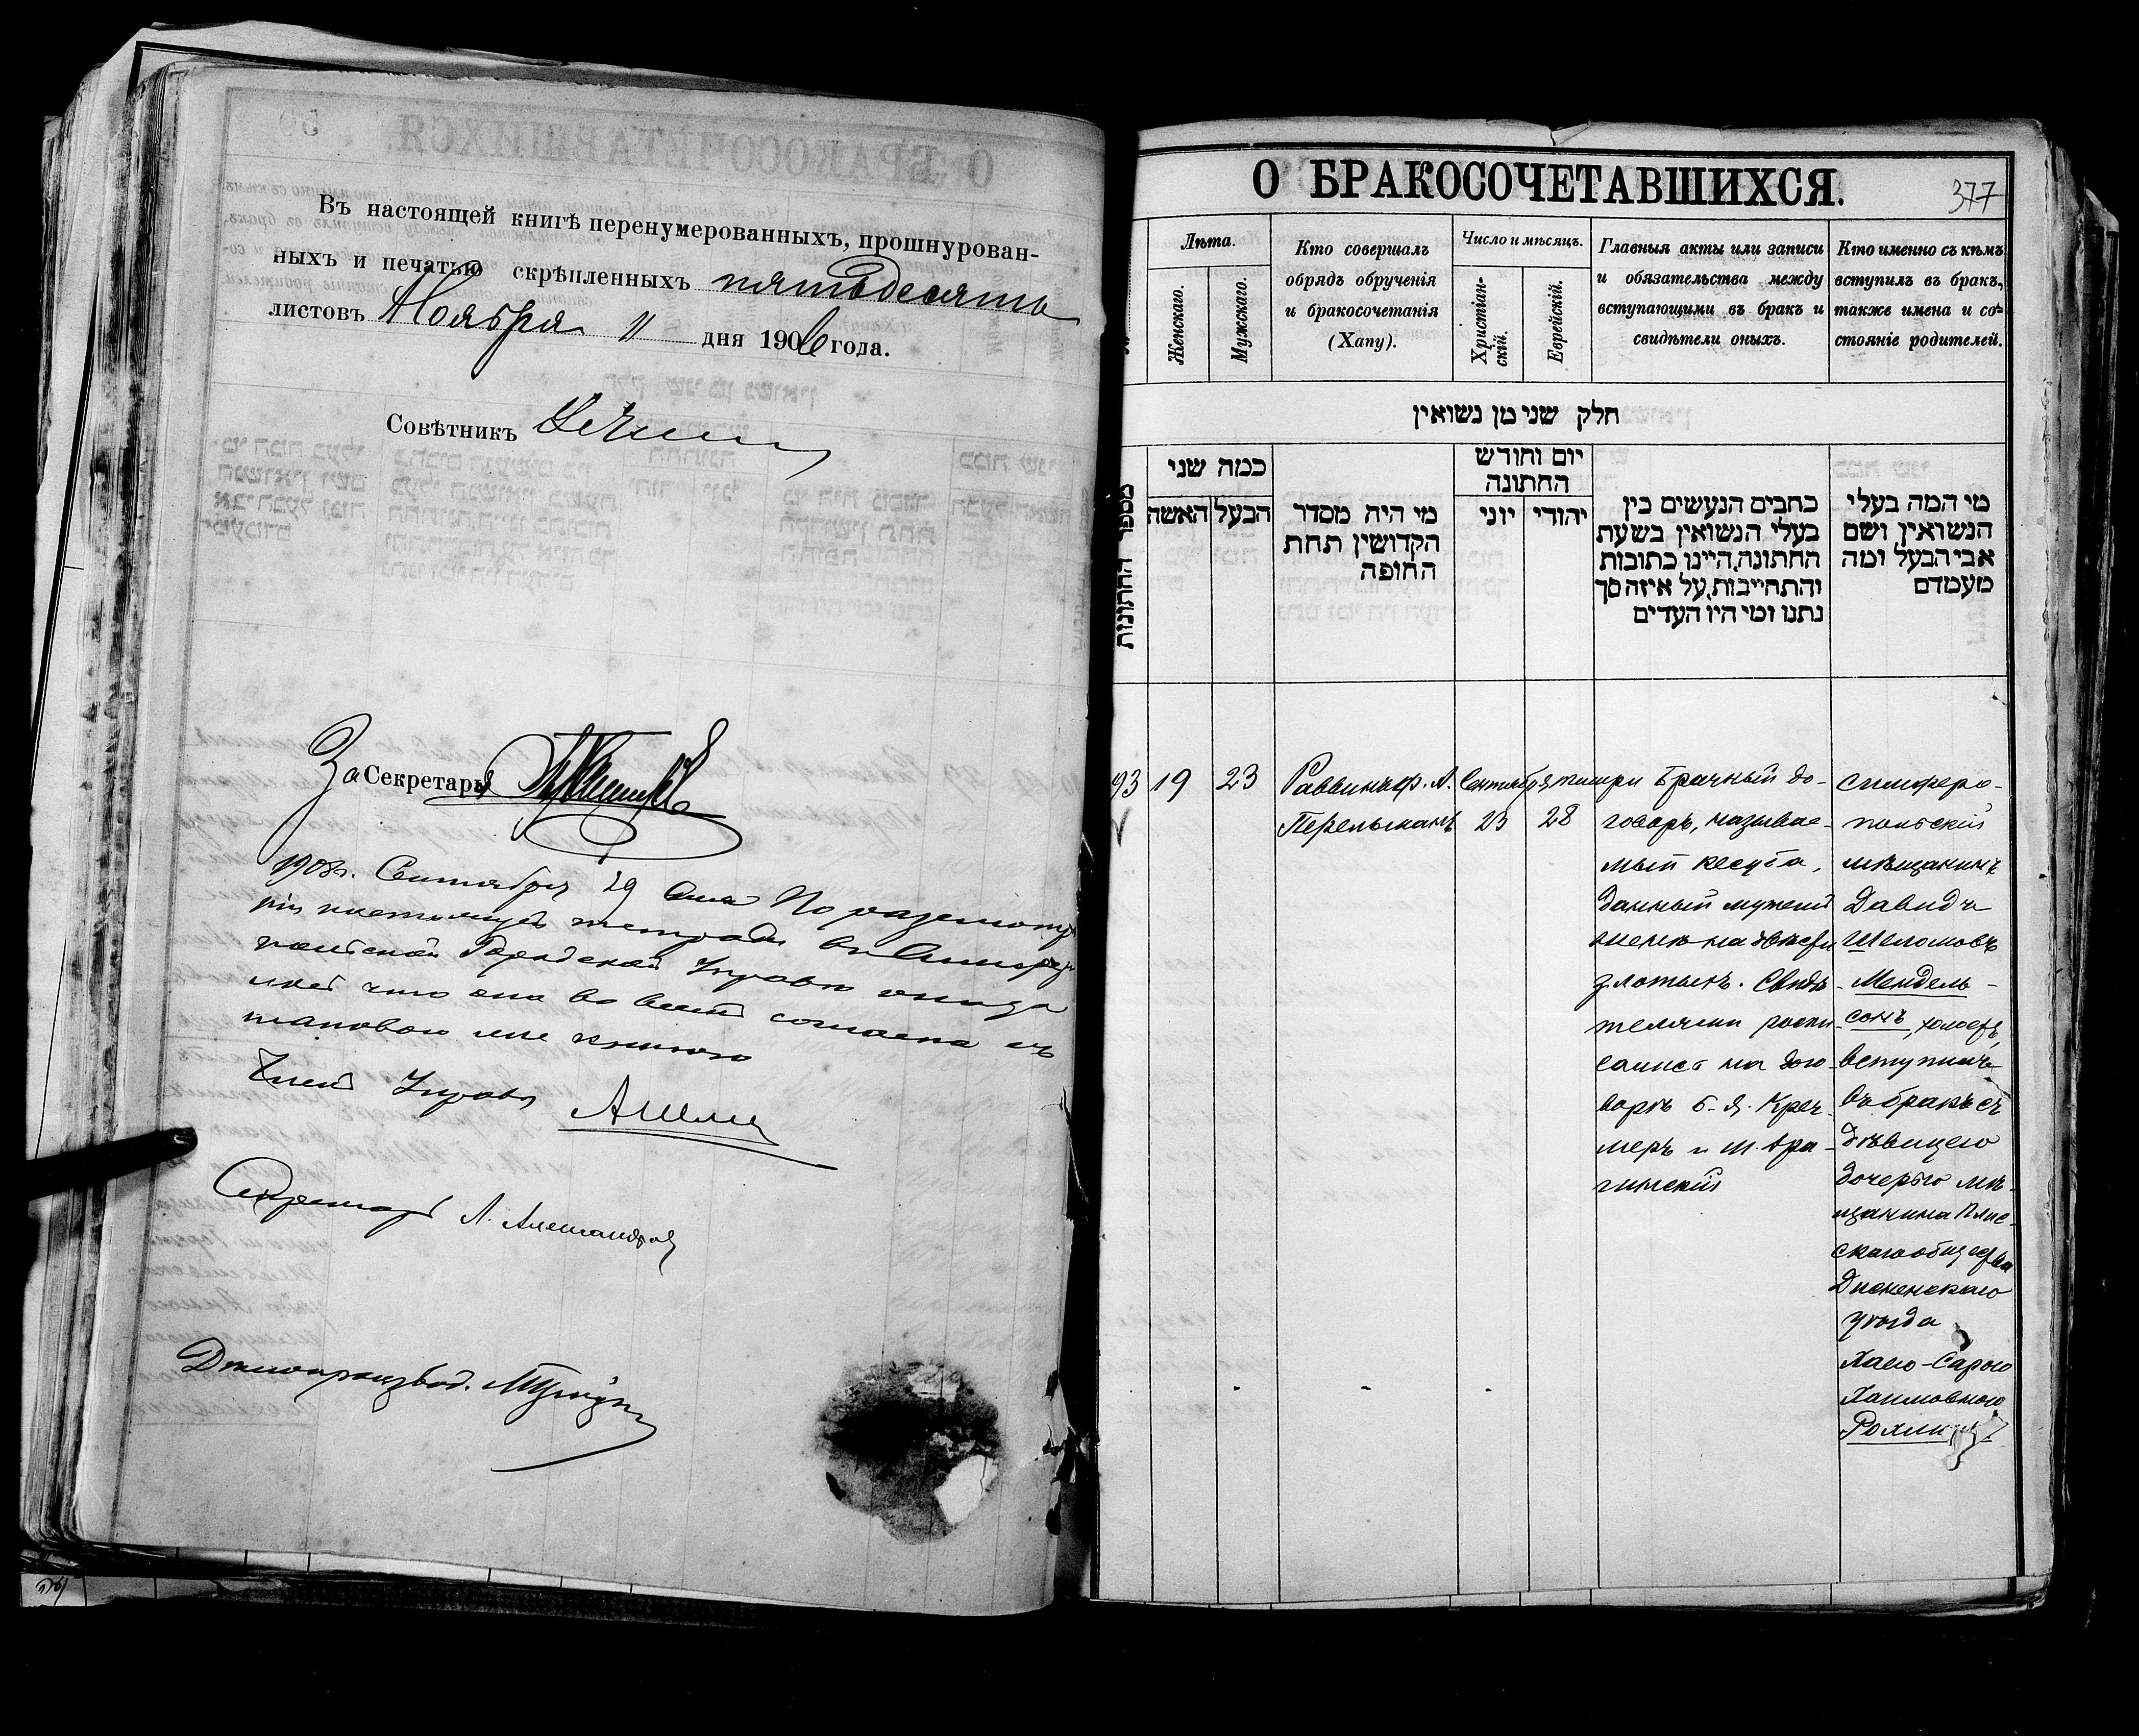 Въ настоящей книгѣ перенумерованныхъ, прошнурован-
ныхъ и печатью скрѣпленныхъ пятьдесятъ
листовъ Ноября 11 дня 1906 года.
Совѣтникъ
За Секретаря
1908г. Сентября 29 дня По разсмотрѣ
ніи настоящей тетради въ Симферо
польской Городской Управѣ оказа
лось что она во всемъ согласна съ
таковою же книгою
Членъ Управы
Секретарь Л. Александров
Дѣлопроизвод.
О БРАКОСОЧЕТАВШИХСЯ.
377
Лѣта.
Женскаго.
Мужскаго.
Кто совершалъ
обрядъ обрученія
и бракосочетанія
(Хапу).
Число и мѣсяцъ.
Христіан-
скій.
Еврейскій.
Главныя акты или записи
и обязательства между
вступающими въ бракъ и
свидѣтели оныхъ.
Кто именно съ кѣмъ
вступилъ въ бракъ,
также имена и со-
стояніе родителей.
חלק שני מן נשואין
מספר החתונות
כמה שני
האשה
הבעל
מי היה מסדר
הקדושין תחת
החופה
יום וחודש
החתונה
יוני
יהודי
כתבים הנעשים בין
בעלי הנשואין בשעת
החתונה, היינו כתובות
והתחייבות, על איזה סך
נתנו ומי היו העדים
מי המה בעלי
הנשואין ושם
אבי הבעל ומה
מעמדם
93
19
23
Раввинъ ф. А.
Перельманъ
Сентября
23
тишри
28
Брачный до-
говоръ, называе-
мый кесуба,
данный мужемъ
женѣ на двѣсти
злотыхъ. Свидѣ-
телями распи-
сались на дого-
ворѣ Б-Я. Кре-
меръ и Ш. Бра-
гинскій
Симферо-
польскій
мѣщанинъ
Давидъ
Шеломовъ
Мендель-
сонъ, холостъ,
вступилъ
въ бракъ съ
дѣвицею
дочерью мѣ-
щанина Плис-
скаго общества
Дисненскаго
уѣзда
Хаею-Сарою
Хаимовною